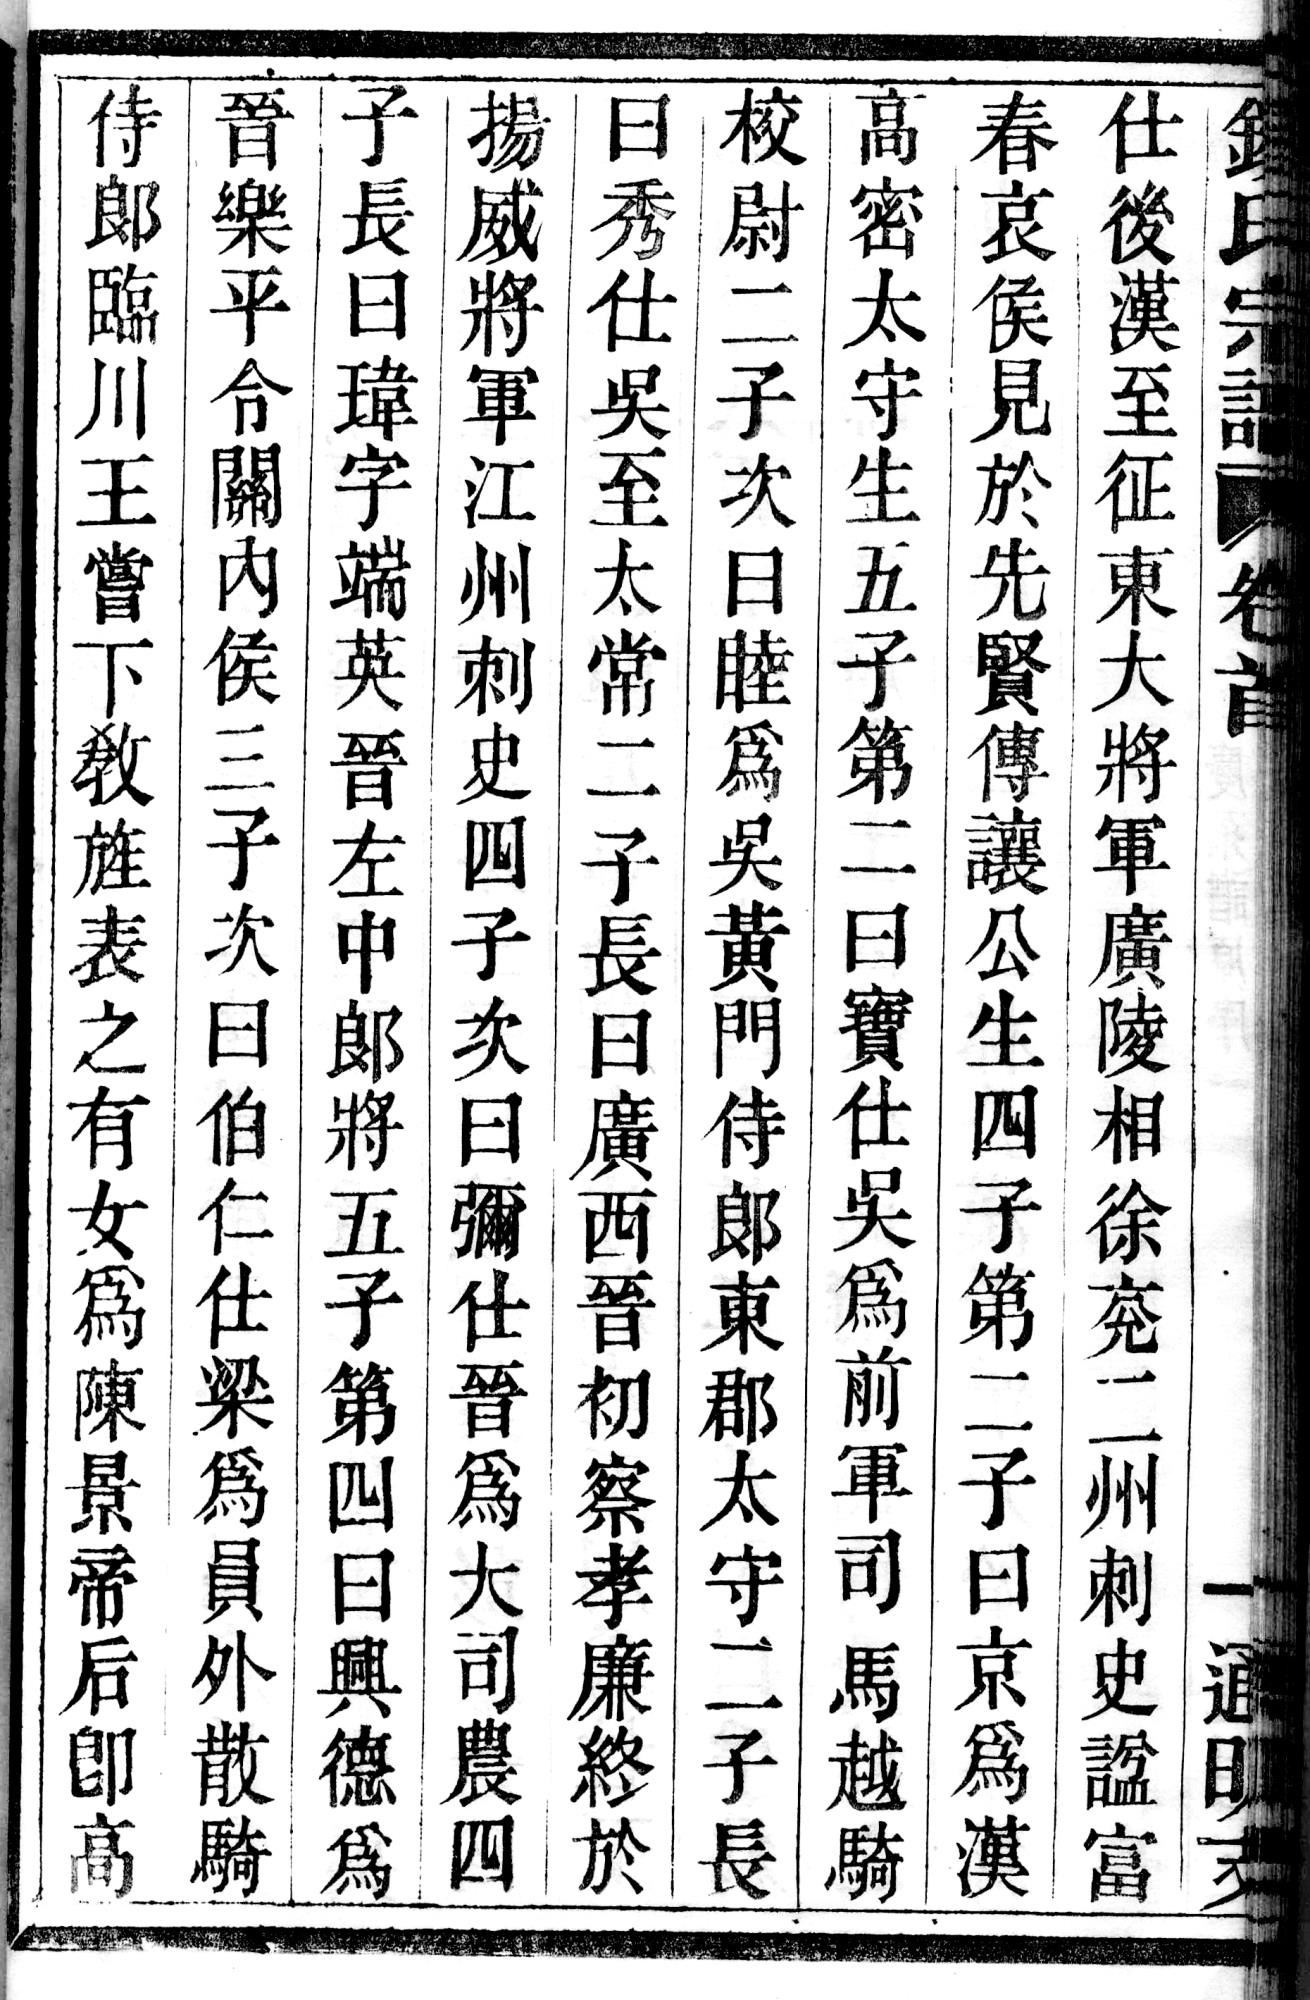 錢氏宗譜 卷首 一 通明支
仕後漢至征東大將軍廣陵相徐兖二州刺史諡富
春哀侯見於先賢傳讓公生四子第二子曰京爲漢
高密太守生五子第二曰寶仕吳爲前軍司馬越騎
校尉二子次曰睦爲吳黃門侍郎東郡太守二子長
曰秀仕吳至太常二子長曰廣西晉初察孝廉終於
揚威將軍江州刺史四子次曰彌仕晉爲大司農四
子長曰瑋字端英晉左中郎將五子第四曰興德爲
晉樂平令關內侯三子次曰伯仁仕梁爲員外散騎
侍郎臨川王嘗下敎旌表之有女爲陳景帝后卽高